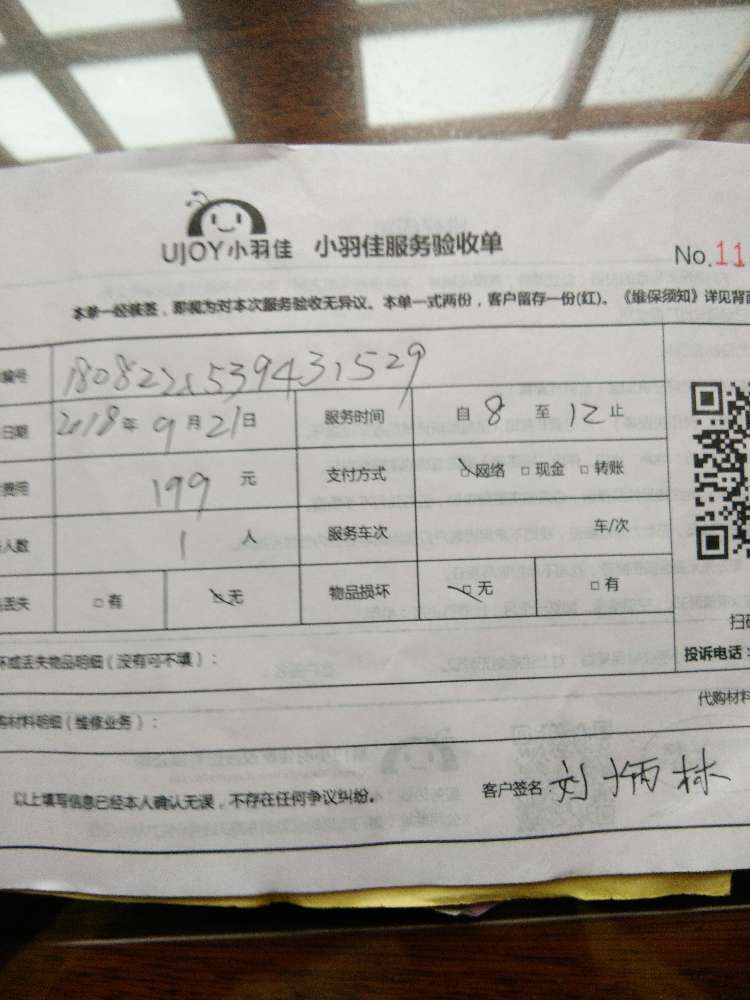 UJOY小羽佳 小羽佳服务验收单
No.11
本单一经核签，即视为对本次服务验收无异议。本单一式两份，客户留存一份(红)。《维保须知》详见背面
编号 1808225539431529
日期 2018年9月21日 服务时间 自8至12止
费用 199元 支付方式 □网络 □现金 □转账
人数 1人 服务车次 车/次
丢失 □有 □无 物品损坏 □无 □有
扫码
坏或丢失物品明细（没有可不填）：
投诉电话：
购材料明细（维修业务）：
代购材料
以上填写信息已经本人确认无误，不存在任何争议纠纷。
客户签名：刘炳林